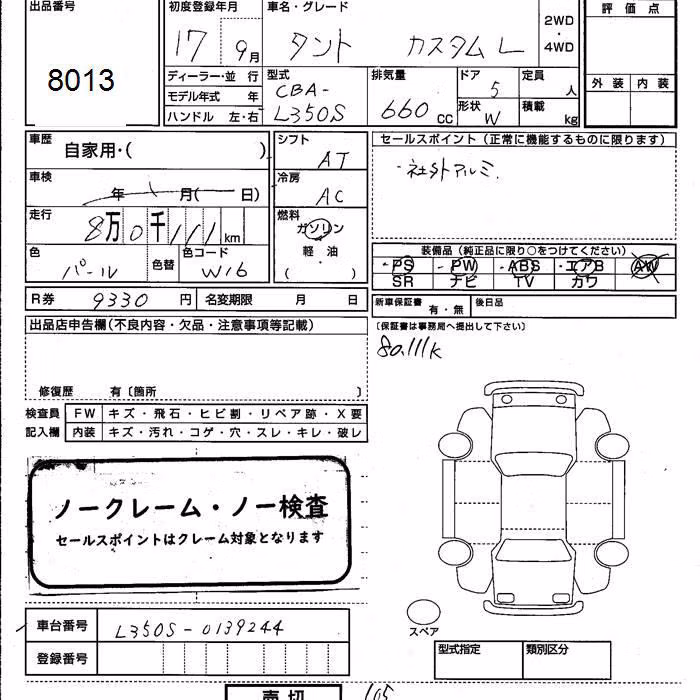 出品番号 初度登録年月 車名・グレード 2WD 評価点
8013 17 9月 タント カスタム L ・
4WD
ディーラー・並 行 型式 排気量 ドア 定員 外装 内装
モデル年式 年 CBA- 5 人
ハンドル 左・右 L350S 660 cc 形状 W 積載 kg
車歴 自家用・( ) シフト AT セールスポイント(正常に機能するものに限ります)
車検 年 月( 日) 冷房 AC ・社外アルミ.
走行 8万0千111km 燃料
ガソリン
軽・油
( ・ )
色 パール 色替 色コード W16
装備品(純正品に限り○をつけてください)
・PS ・PW ・ABS ・エアB AW
SR ナビ TV カワ
R券 9330円 名変期限 月 日 新車保証書 有・無 後日品
出品店申告欄(不良内容・欠品・注意事項等記載) 〔保証書は事務局へ提出して下さい〕
80.111k
修復歴 有〔箇所 〕
検査員 FW キズ・飛石・ヒビ割・リペア跡・X要
記入欄 内装 キズ・汚れ・コゲ・穴・スレ・キレ・破レ
ノークレーム・ノー検査
セールスポイントはクレーム対象となります
スペア
車台番号 L350S-0139244
登録番号 型式指定 類別区分
売切 105